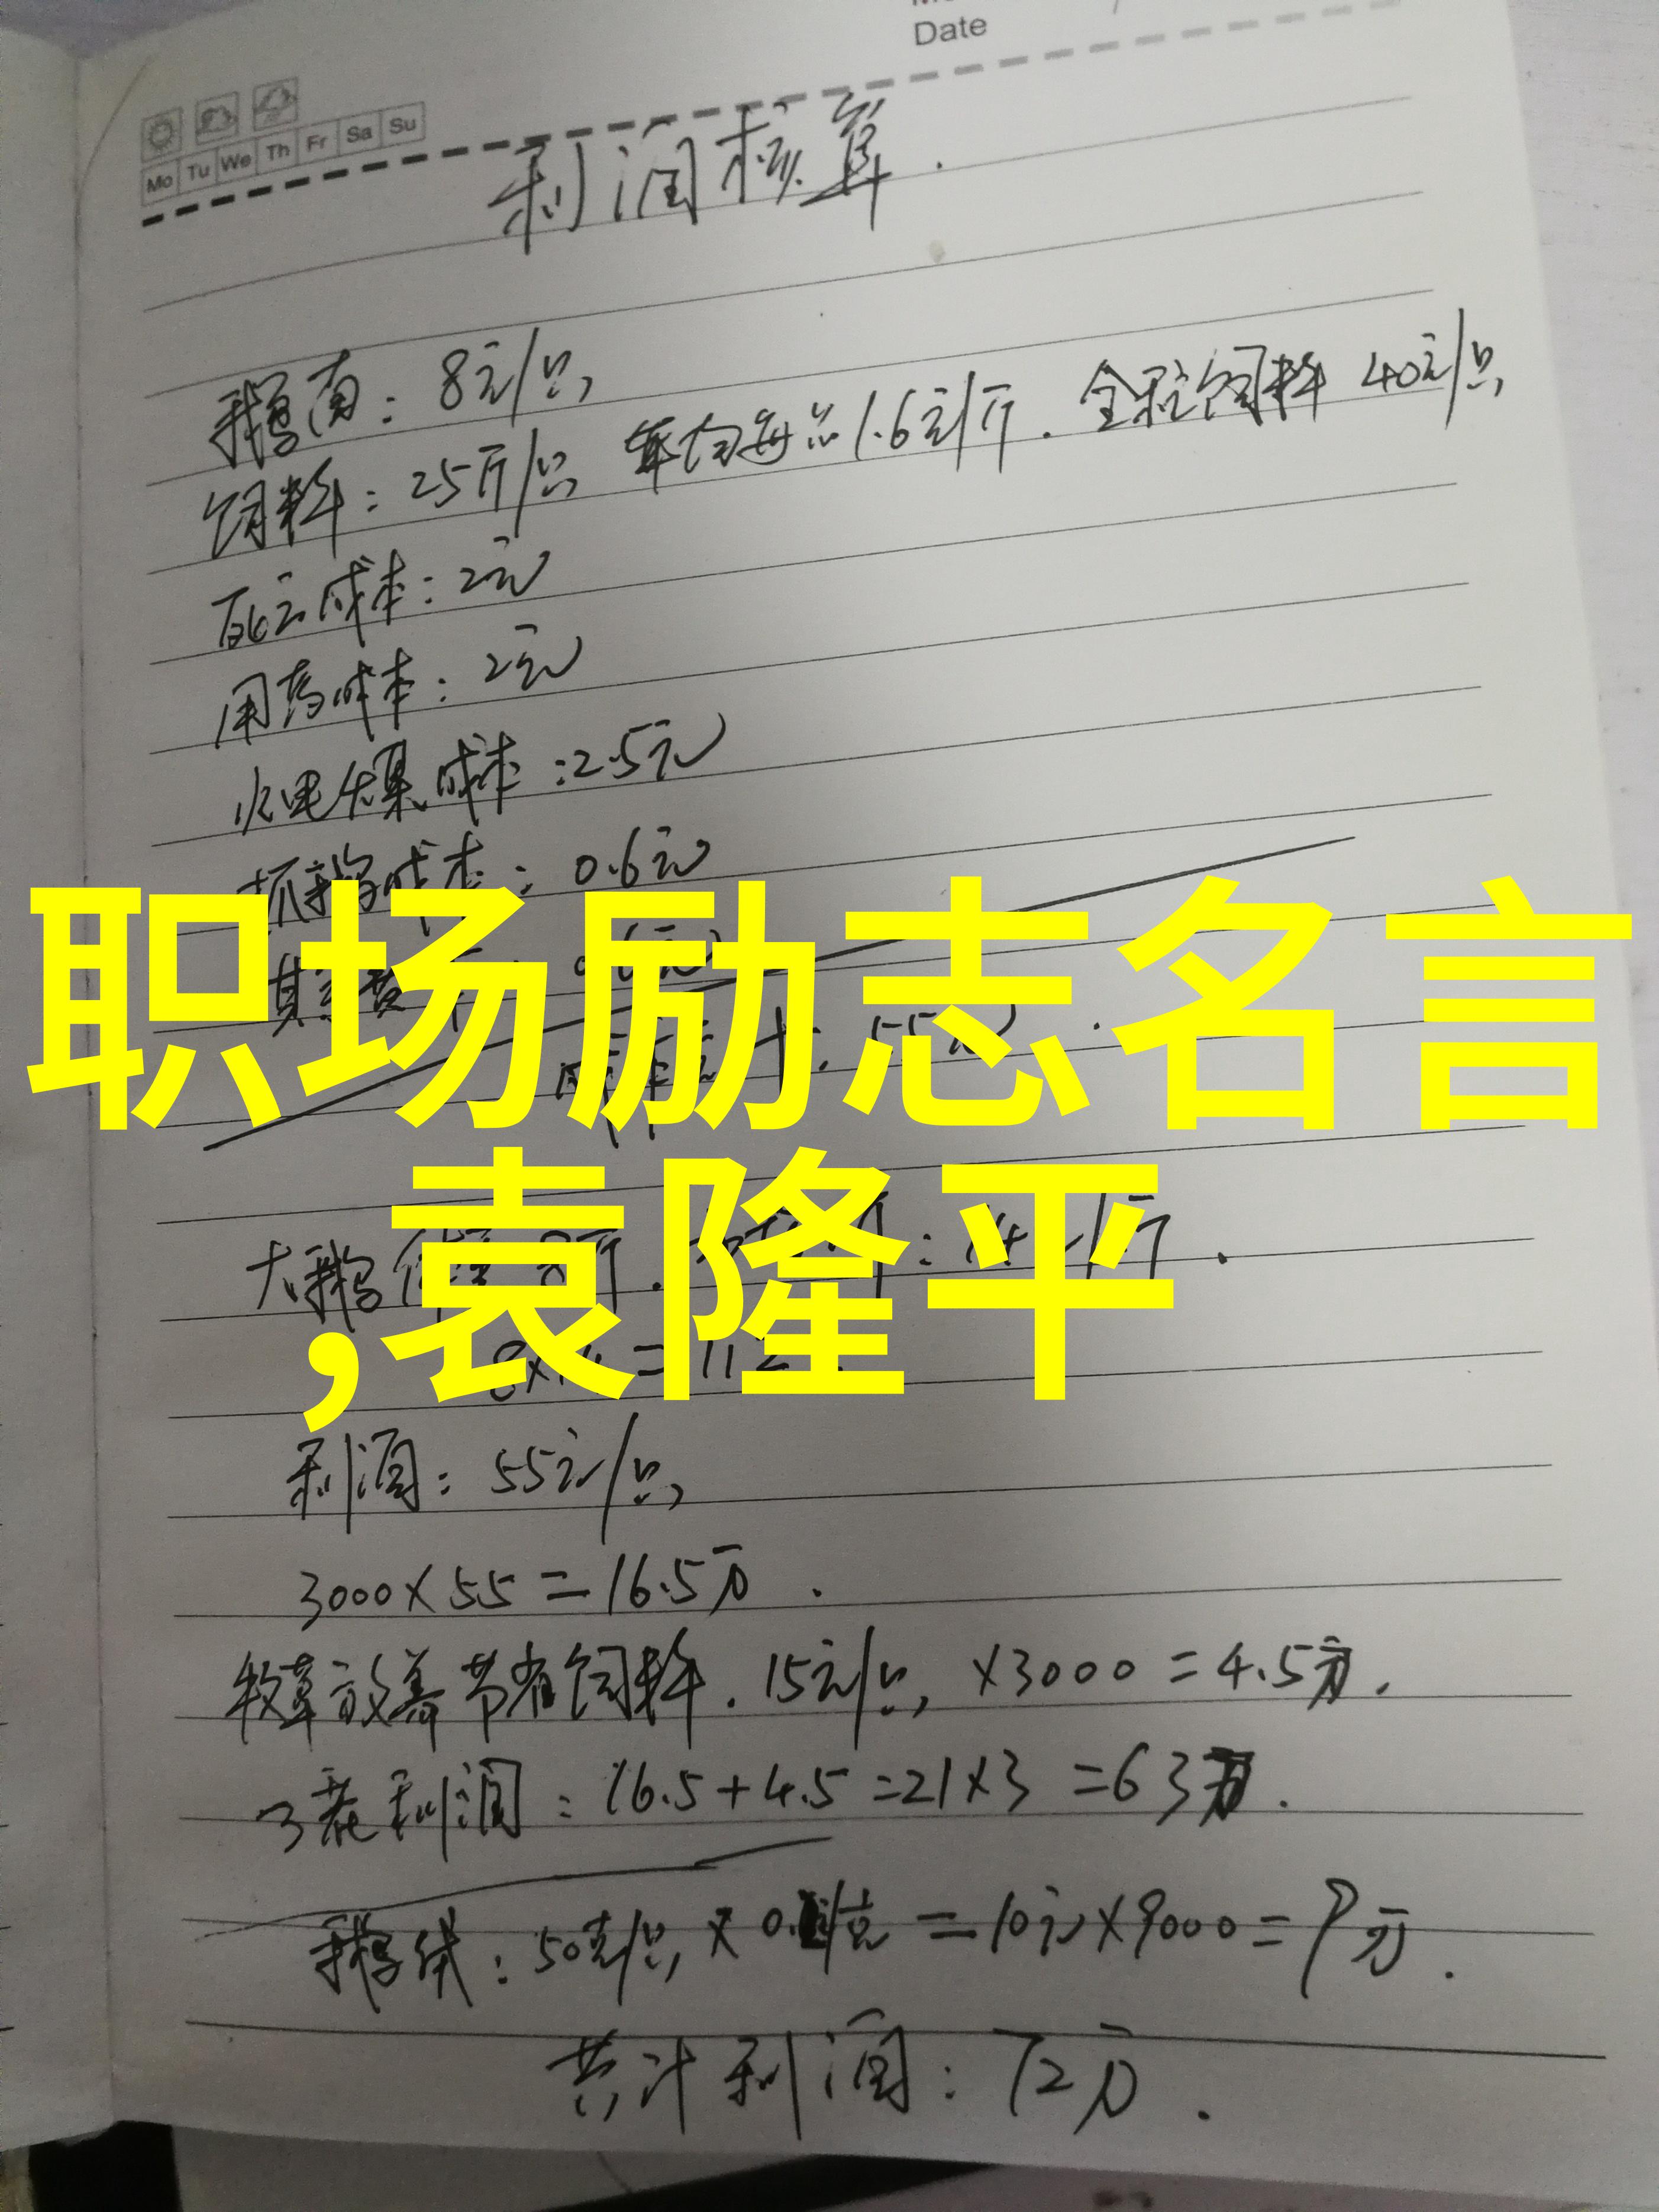 Date
Mo Tu We Th Fr Sa Su
利润核算.
鹅苗: 8元/只,
饲料: 25斤/只, 平均每斤1.6元/斤. 全程饲料 40元/只,
死亡成本: 2元
用药成本: 2元
水电煤成本: 2.5元
抓鹅成本: 0.6元
职场励志名言
,袁隆平
利润: 55元/只,
3000×55=16.5万.
牧草放养节省饲料. 15元/只, ×3000=4.5万.
3茬利润: 16.5+4.5=21×3=63万.
鹅绒: 50克/只, × =10元×9000=9万.
共计利润: 72万.